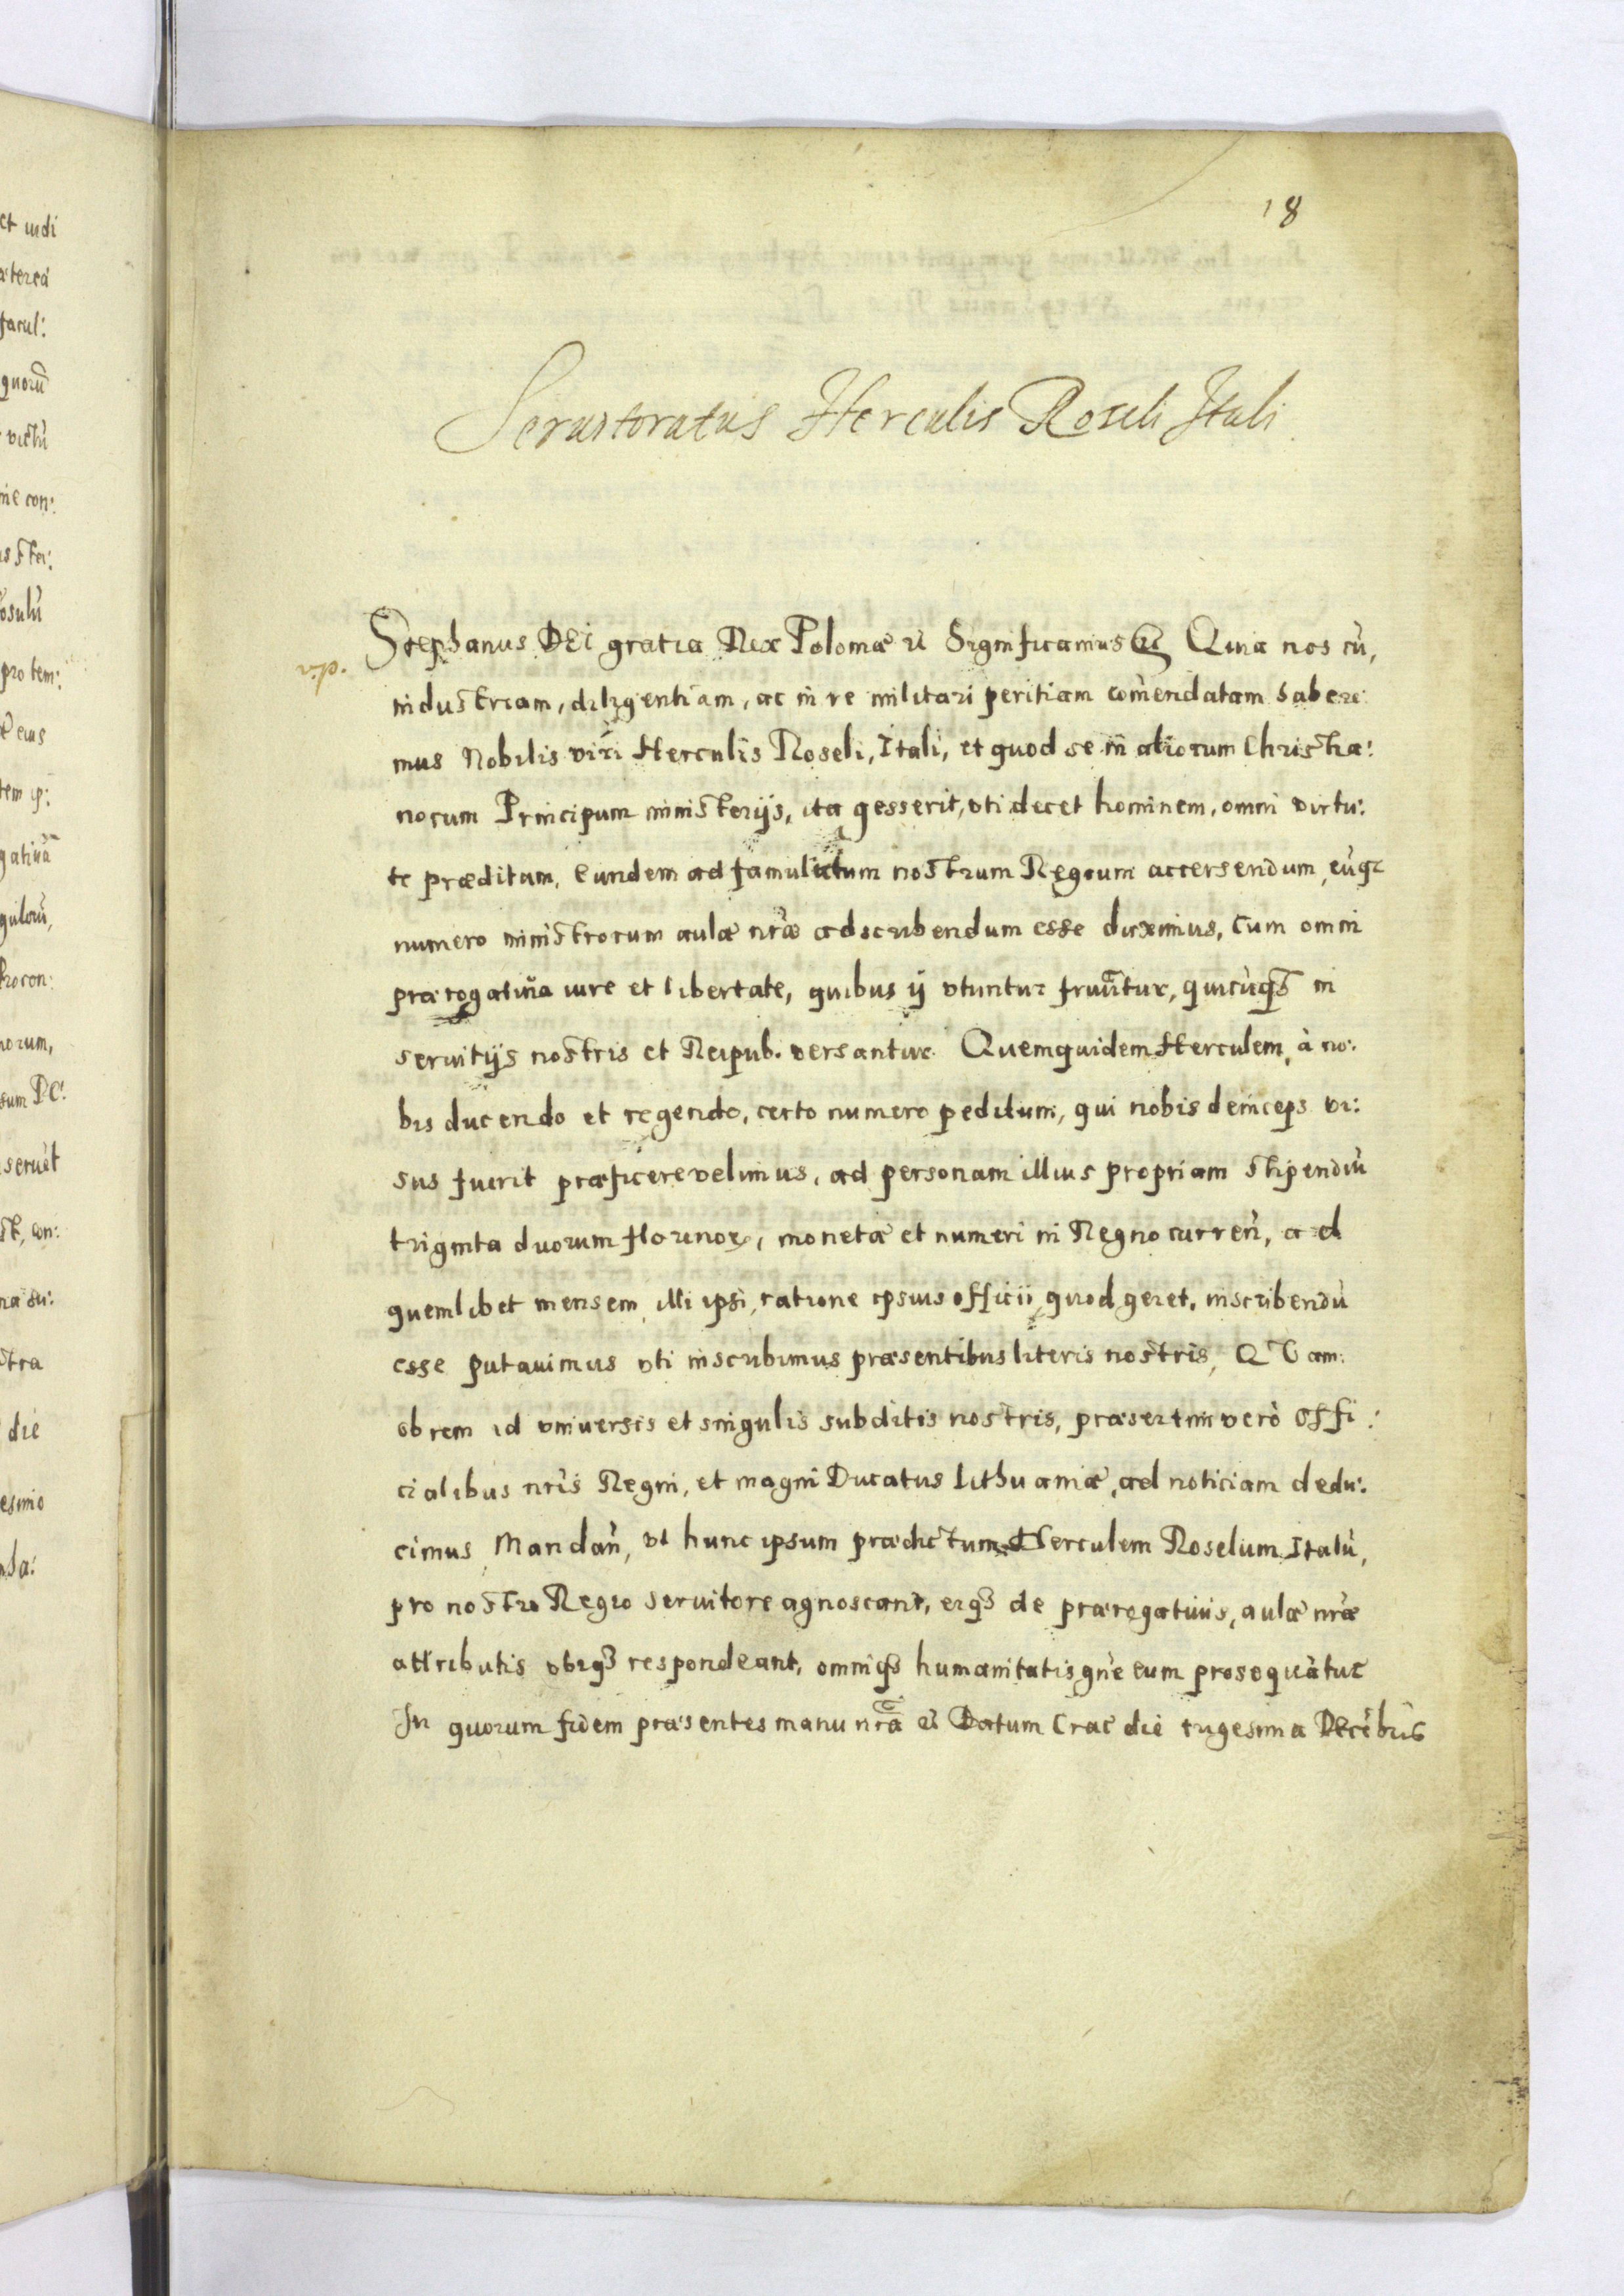 18
Seruitoratus Herculis Roseli Itali
v.p.
Stephanus DEi gratia Rex Poloniæ etc Significamus etc Quia nos cũ,
industriam, diligentiam, ac in re militari peritiam com̃endatam habere
mus Nobilis viri Herculis Roseli, Itali, et quod se in aliorum Christia:
norum Principum ministerijs, ita gesserit, vti decet hominem, omni virtu:
te præditam, eundem ad famulatum nostrum Regium accersendum, eũq3
numero ministrorum aulæ nr̃æ adscribendum esse duximus, cum omni
prærogatiua iure et libertate, quibus ij vtuntur fruũtur, quicũq3 in
seruitijs nostris et Reipub. versantur. Quemquidem Herculem, à no:
bis ducendo et regendo, certo numero peditum, qui nobis deinceps vi:
sus fuerit præficere velimus, ad personam illius propriam stipendiũ
triginta duorum florenor, monetæ et numeri in Regno curreñ, ad
quemlibet mensem, illi ipsi, ratione ipsius officii, quod geret, inscribendũ
esse putauimus vti inscribimus præsentibus literis nostris, QVam:
obrem id vniuersis et singulis subditis nostris, præsertim verò Offi:
cialibus nr̃is Regni, et magni Ducatus Lithuaniæ, ad noticiam dedu:
cimus Mandañ, vt hunc ipsum prædictum Herculem Roselium Italũ,
pro nostro Regio seruitore agnoscant, eiq3 de prærogatiuis, aulæ nr̃æ
attributis vbiq3 respondeant, omniq3 humanitatis gñe eum prosequãtur
In quorum fidem præsentes manu nr̃a etc Datum Crac̃ die trigesima Decẽbris